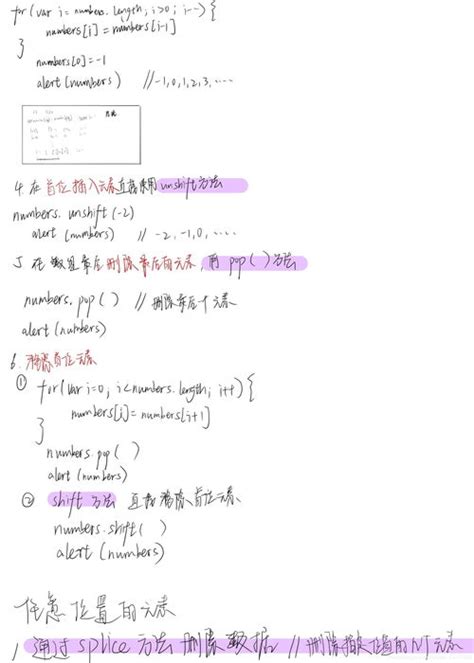 for (var i = numbers.length; i>0; i--) {
numbers[i] = numbers[i-1]
}
numbers[0] = -1
alert(numbers) //-1,0,1,2,3,....
4. 在首位插入元素直接使用 unshift方法
numbers.unshift(-2)
alert(numbers) // -2,-1,0,....
5 在数组最后删除最后的元素,用 pop()方法
numbers.pop() // 删除最后一个元素
alert(numbers)
6. 移除首位元素
① for(var i=0; i<numbers.length; i++) {
numbers[i] = numbers[i+1]
}
numbers.pop()
alert(numbers)
② shift 方法 直接移除首位元素
numbers.shift()
alert(numbers)
任意位置的元素
1 通过 splice 方法删除数据 // 删除指定位置的N个元素